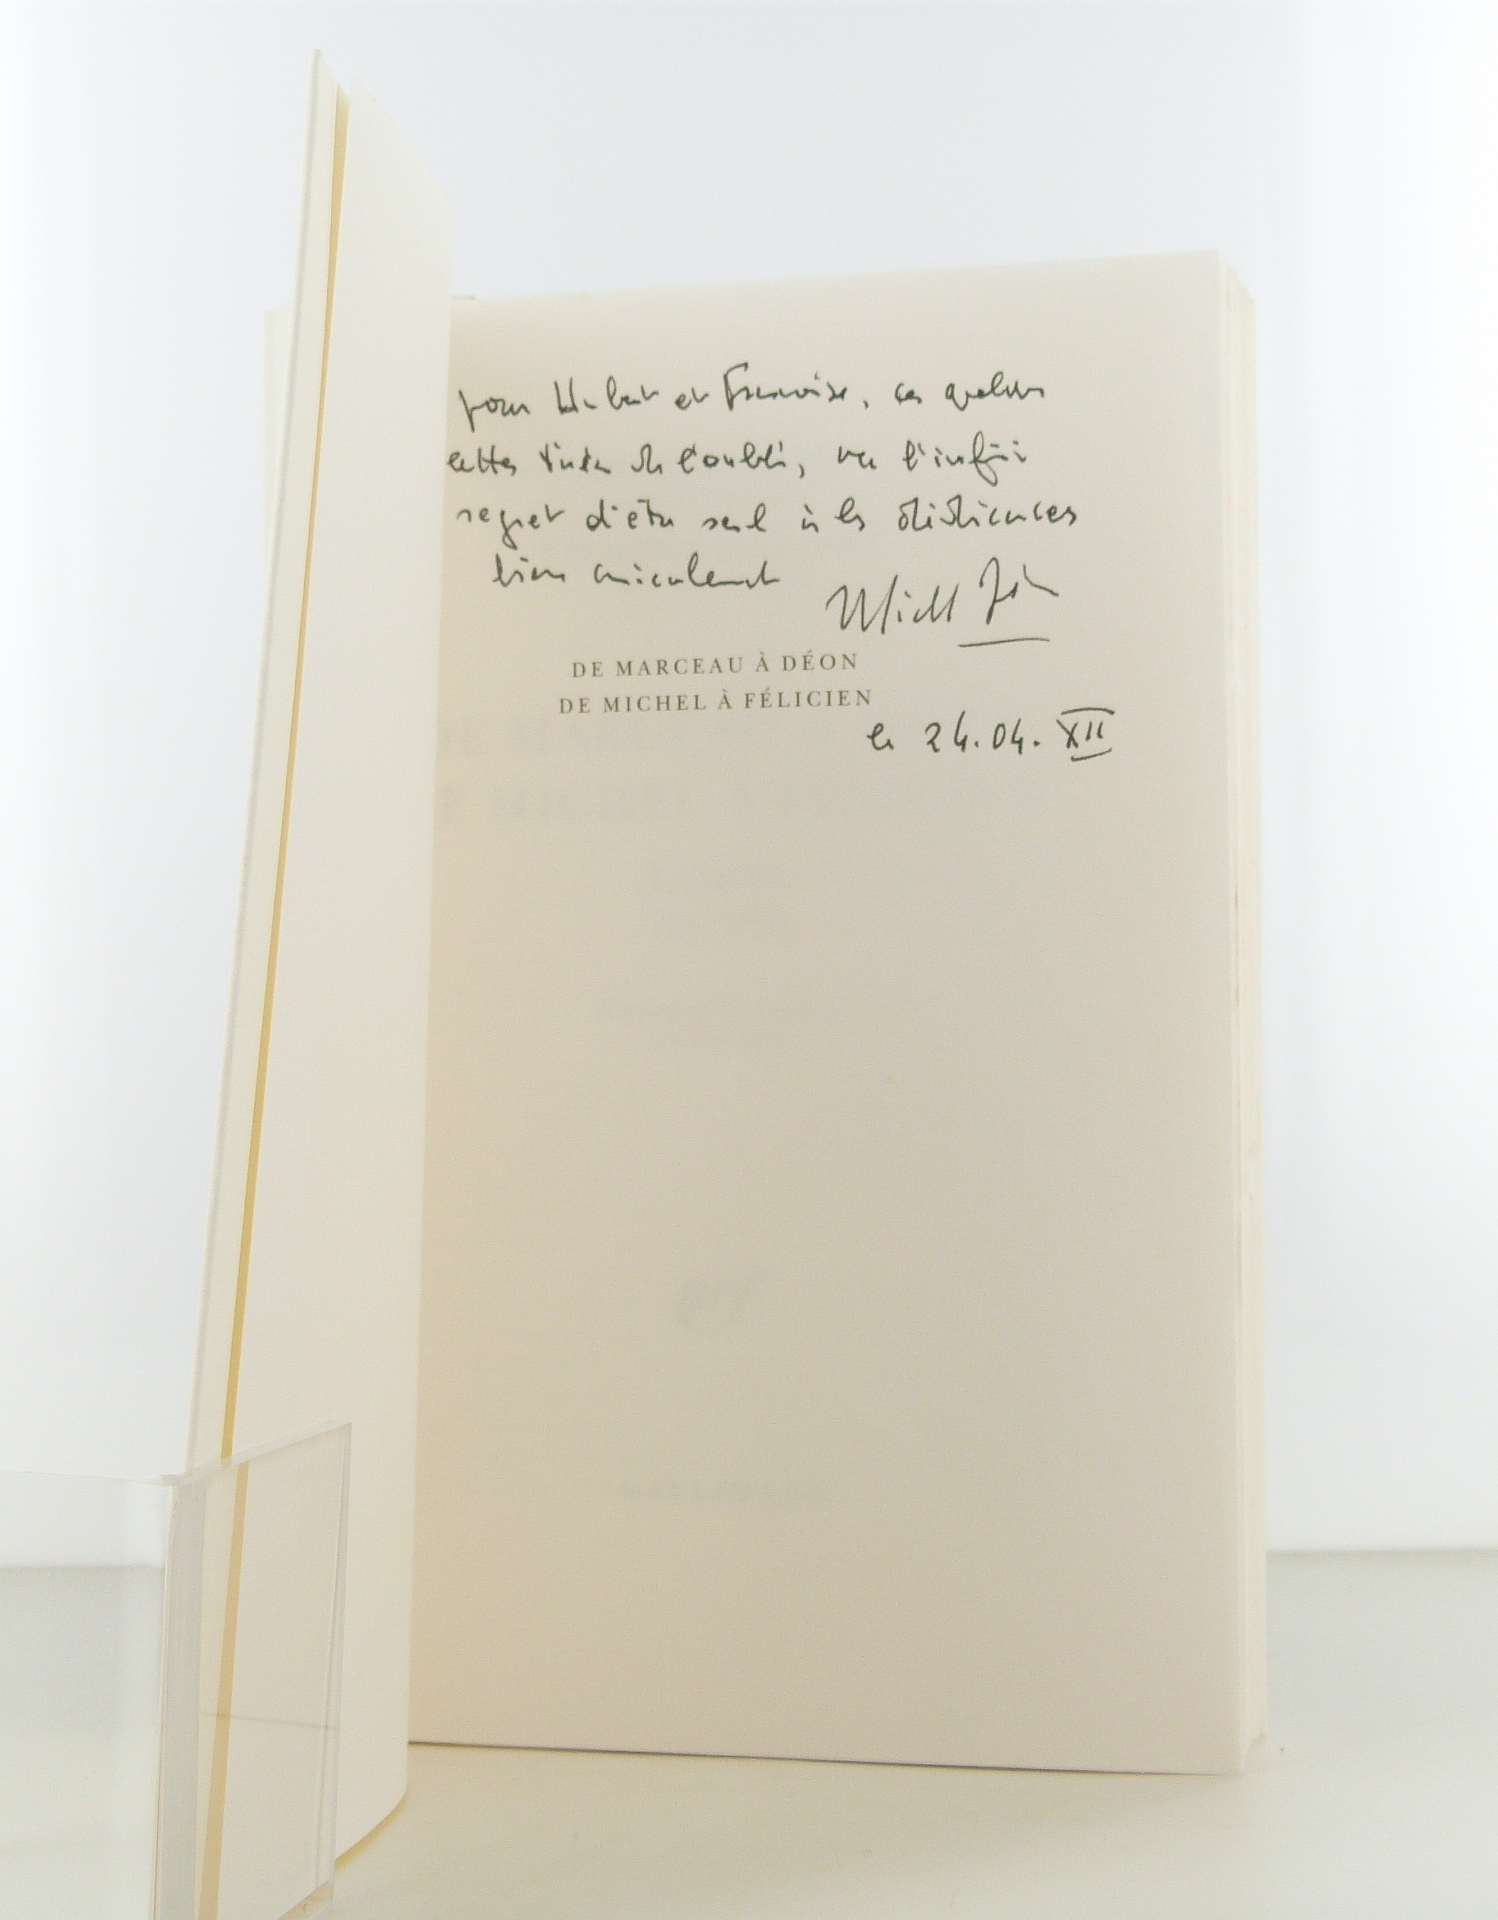 pour Hubert et Françoise, ces quelques
lettres tirées de l'oubli, vu l'infini
regret d'être seul à les dédicacer
bien amicalement
Michel Déon
DE MARCEAU À DÉON
DE MICHEL À FÉLICIEN
le 24.04. XII
nrf
GALLIMARD